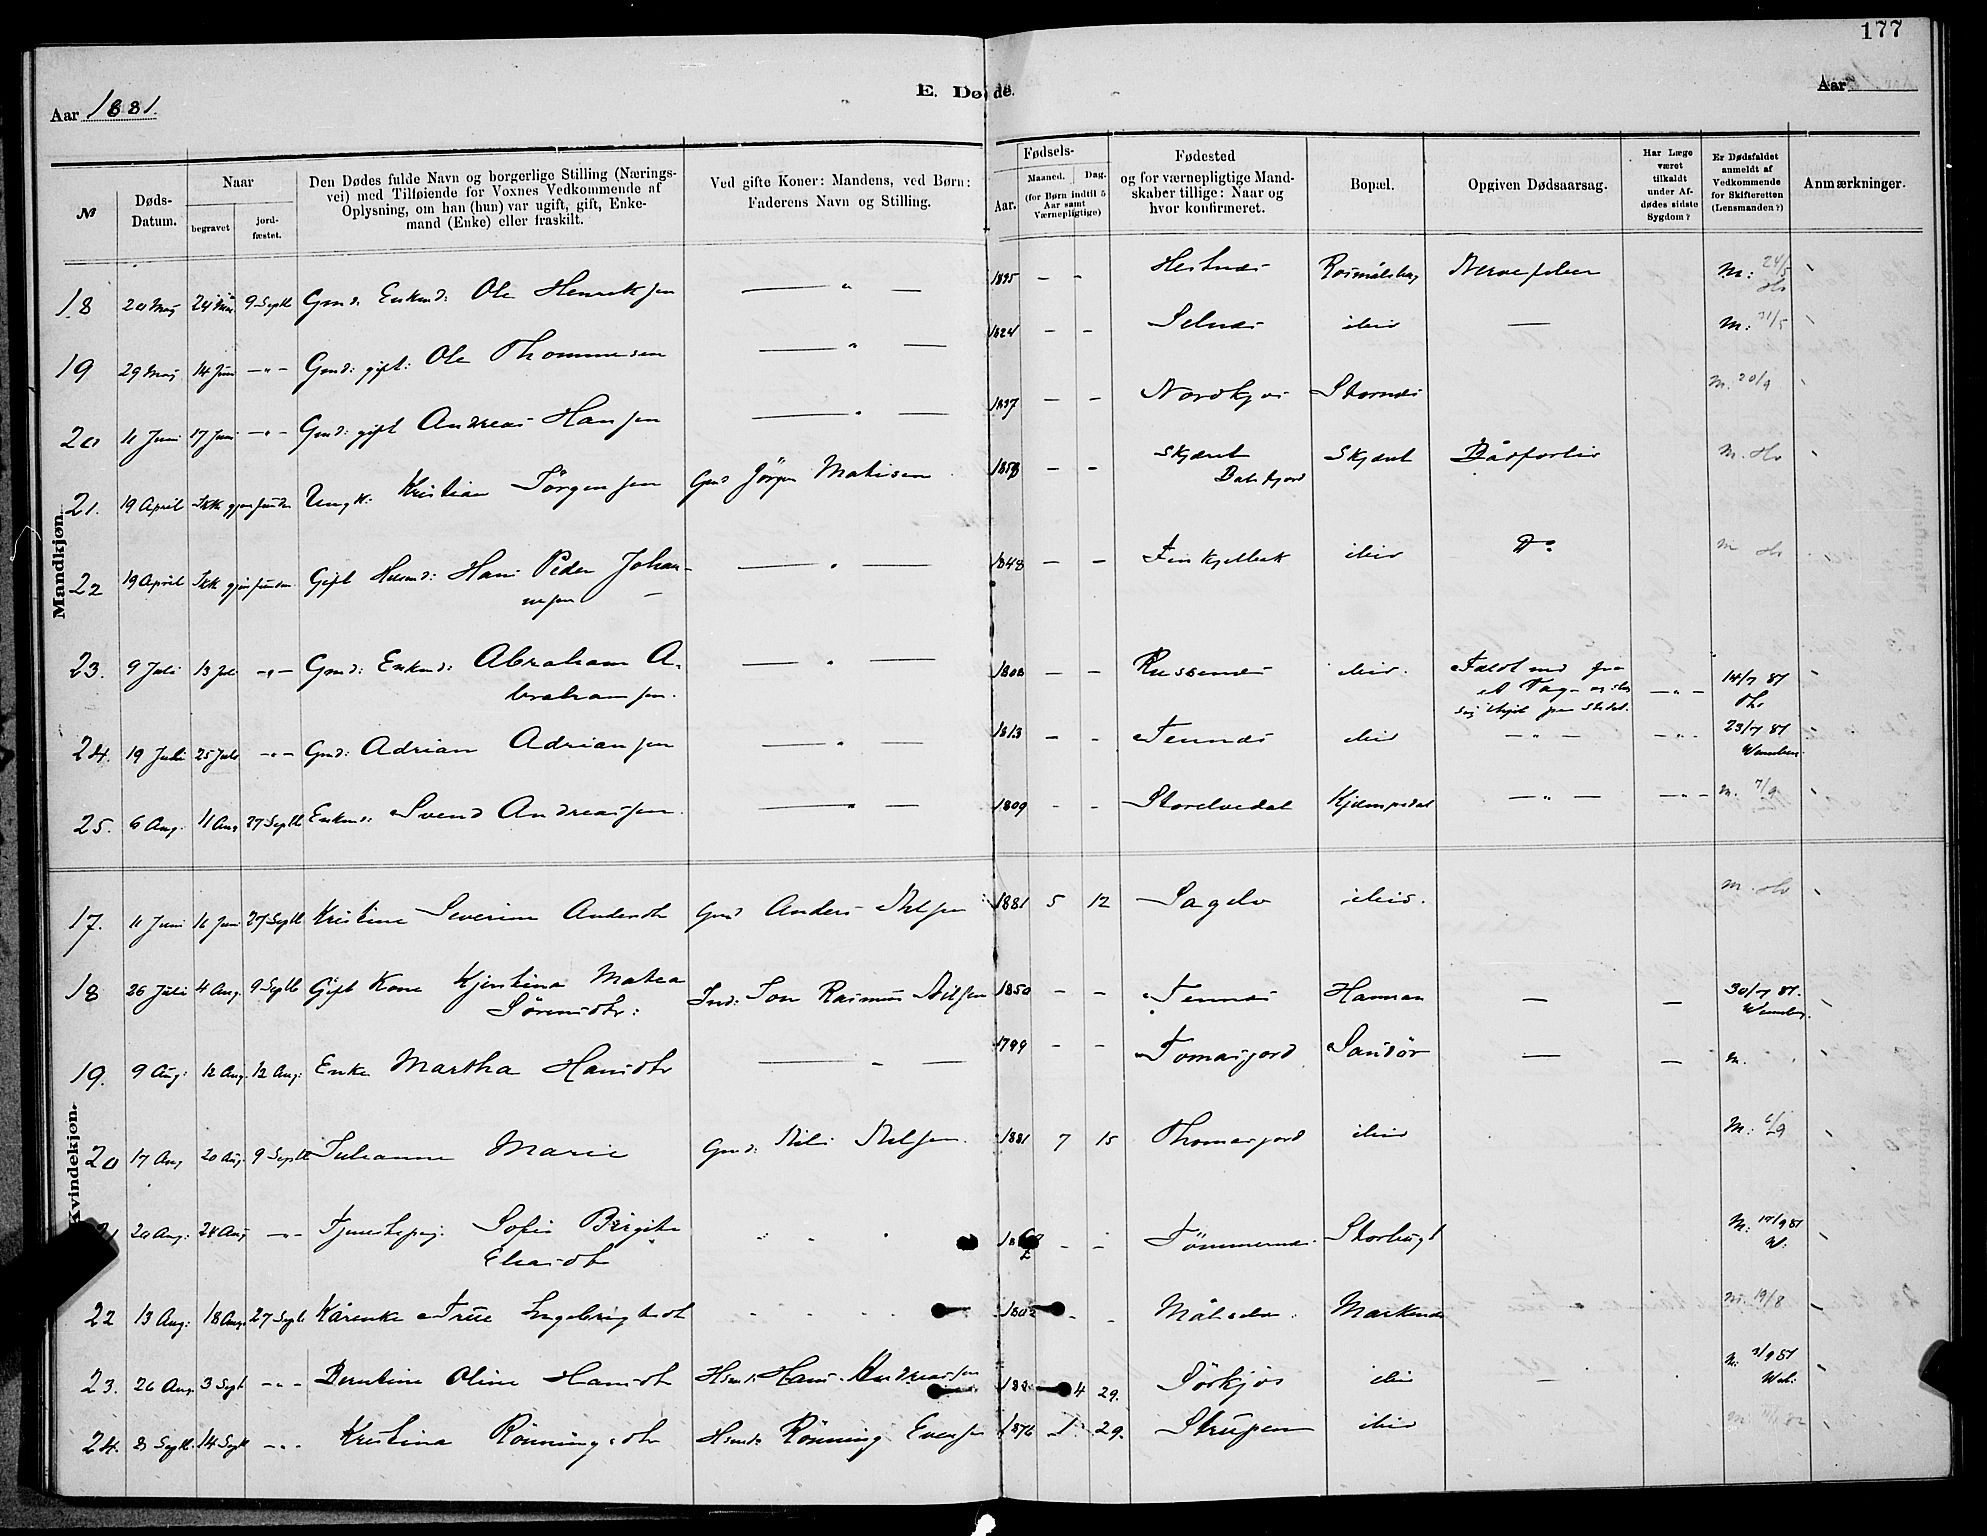 177
Aar 1881.
E. Døde.
Aar
№
Døds-Datum.
Naar
begravet
jord-fæstet.
Den Dødes fulde Navn og borgerlige Stilling (Nærings-
vei) med Tilføiende for Voxnes Vedkommende af
Oplysning, om han (hun) var ugift, gift, Enke-
mand (Enke) eller fraskilt.
Ved gifte Koner: Mandens, ved Børn:
Faderens Navn og Stilling.
Fødsels-
Aar.
Maaned.
Dag.
(for Børn indtil 5
Aar samt
Værnepligtige)
Fødested
og for værnepligtige Mand-
skaber tillige: Naar og
hvor konfirmeret.
Bopæl.
Opgiven Dødsaarsag.
Har Læge
været
tilkaldt
under Af-
dødes sidste
Sygdom?
Er Dødsfaldet
anmeldt af
Vedkommende
for Skifteretten
(Lensmanden?)
Anmærkninger.
Mandkjøn.
18 20 Maj 9 Septb Gmd: Enkmd: Ole Henriksen — " — 1895 - - Hestnæs Nervefeber M: 24/5
19 29 Maj 14 Juni -"- Gmd: gift: Ole Thommesen — " — 1824 - - Selnæs ibid — M: 31/5
20 11 Juni 17 Juni -"- Gmd: gift Andreas Hansen — " — 1837 - - Nordkjos Stornæs M. 20/9
21. 19 April Ikke gjenfunden Ungk: Kristian Jörgensen Gmd Jörgen Matisen 1858 - - Skjæret Balsfjord Skjæret Båtforlis M.
22 19 April Ikke gjenfunden Gift Husmd: Hans Peder Johan-
nesen — " — 1848 - - ibid Do M
23. 9 Juli 13 Juli -"- Gmd: Enkmd: Abraham A-
brahamsen. — " — 1808 - - Russenæs ibid. Faldt ned fra
et Tag -"- 14/7 81
24. 19 Juli 25 Juli -"- Gmd: Adrian Adriansen — " — 1813 - - Tennæs ibid - " - -"- 23/7 81
25. 6 Aug. 11 Aug 27 Septb Enkmd: Svend Andreassen. — " — 1809 - - Storelvedal Kjempedal - " - -"- M. 7/9
Kvindekjøn.
17. 11 Juni 16 Juni 27 Septb Kristine Severine Andersdtr Gmd Anders Nilsen 1881 5 12 Sagelv ibid. M.
18 26 Juli 4 Aug. 9 Septb Gift Kone Kjerstina Matea
Sörensdtr: Ind: Jon Rasmus Nilsen 1850 - - Tennæs — — 30/7 81.
19. 9 Aug: 12 Aug. 12 Aug: Enke Martha Hansdtr — " — 1799 - - Tomasjord Sandör — — M.
20 17 Aug 20 Aug. 9 Septb Julianne Marie Gmd: Nils Nilsen. 1881 7 15 Thomasjord ibid M: 6/9
20 Aug: 24 Aug -"- Tjenestepig: Sofie Birgitte
Eliasdtr - - M: 17/9 81
22 13 Aug: 18 Aug. 27 Septb Kårenke True Ingebrigtsdtr - - Målselv. Markenæs M. 19/8
23. 26 Aug. 3 Sept -"- Berntine Oline Hansdtr Hsmd: Hans Andreassen 4 29. Sörkjos ibid — M: 3/9 81
24. 8 Septb. 14 Sept -"- Kristina Rönningsdtr Hsmd: Rönning Evensen 1876 1 29. Strupen ibid